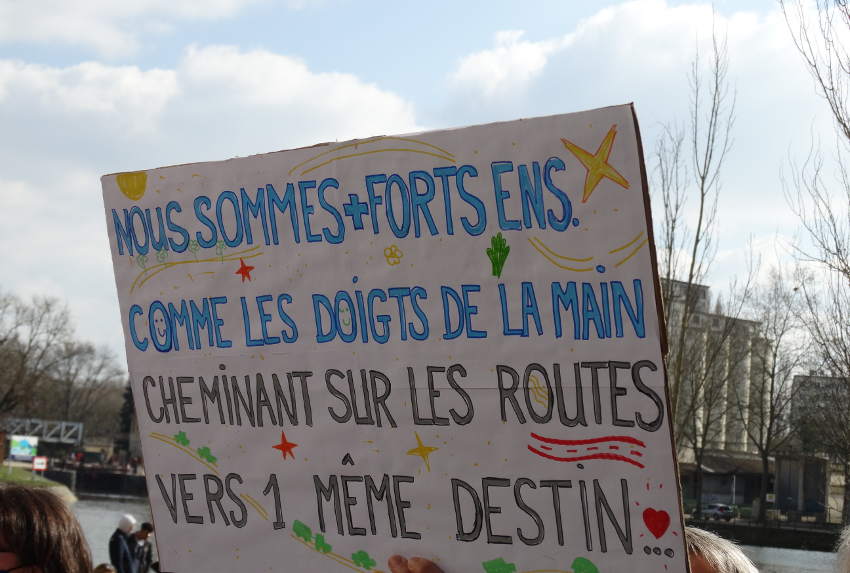 NOUS SOMMES + FORTS ENS.
COMME LES DOIGTS DE LA MAIN
CHEMINANT SUR LES ROUTES
VERS 1 MÊME DESTIN...